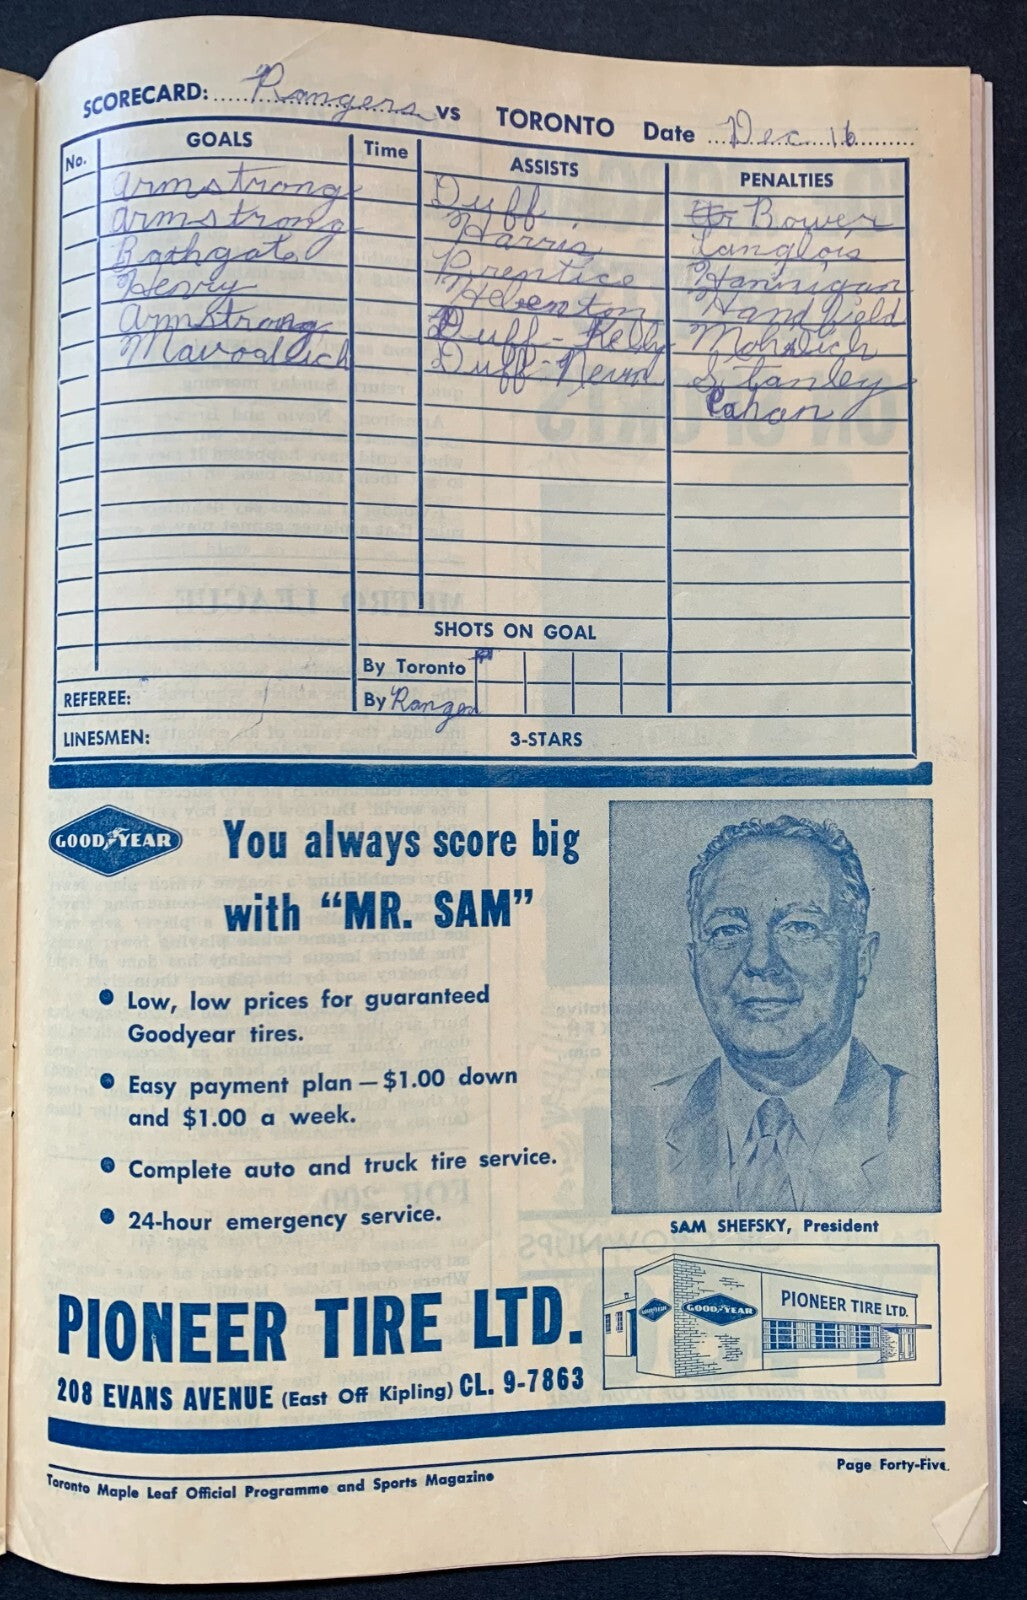 SCORECARD: Rangers vs TORONTO Date Dec 16
No. GOALS Time ASSISTS PENALTIES
Armstrong Duff Bower
Armstrong Harris Langlois
Bathgate Prentice Hannigan
Henry Hebenton Handfield
Armstrong Duff - Kelly Mohalich
Mavoalich Duff - Nevin Stanley
Cahan
SHOTS ON GOAL
By Toronto
By Ranger
REFEREE:
LINESMEN: 3-STARS
GOOD YEAR
You always score big
with "MR. SAM"
• Low, low prices for guaranteed
Goodyear tires.
• Easy payment plan — $1.00 down
and $1.00 a week.
• Complete auto and truck tire service.
• 24-hour emergency service.
SAM SHEFSKY, President
GOOD YEAR PIONEER TIRE LTD.
PIONEER TIRE LTD.
208 EVANS AVENUE (East Off Kipling) CL. 9-7863
Toronto Maple Leaf Official Programme and Sports Magazine
Page Forty-Five.